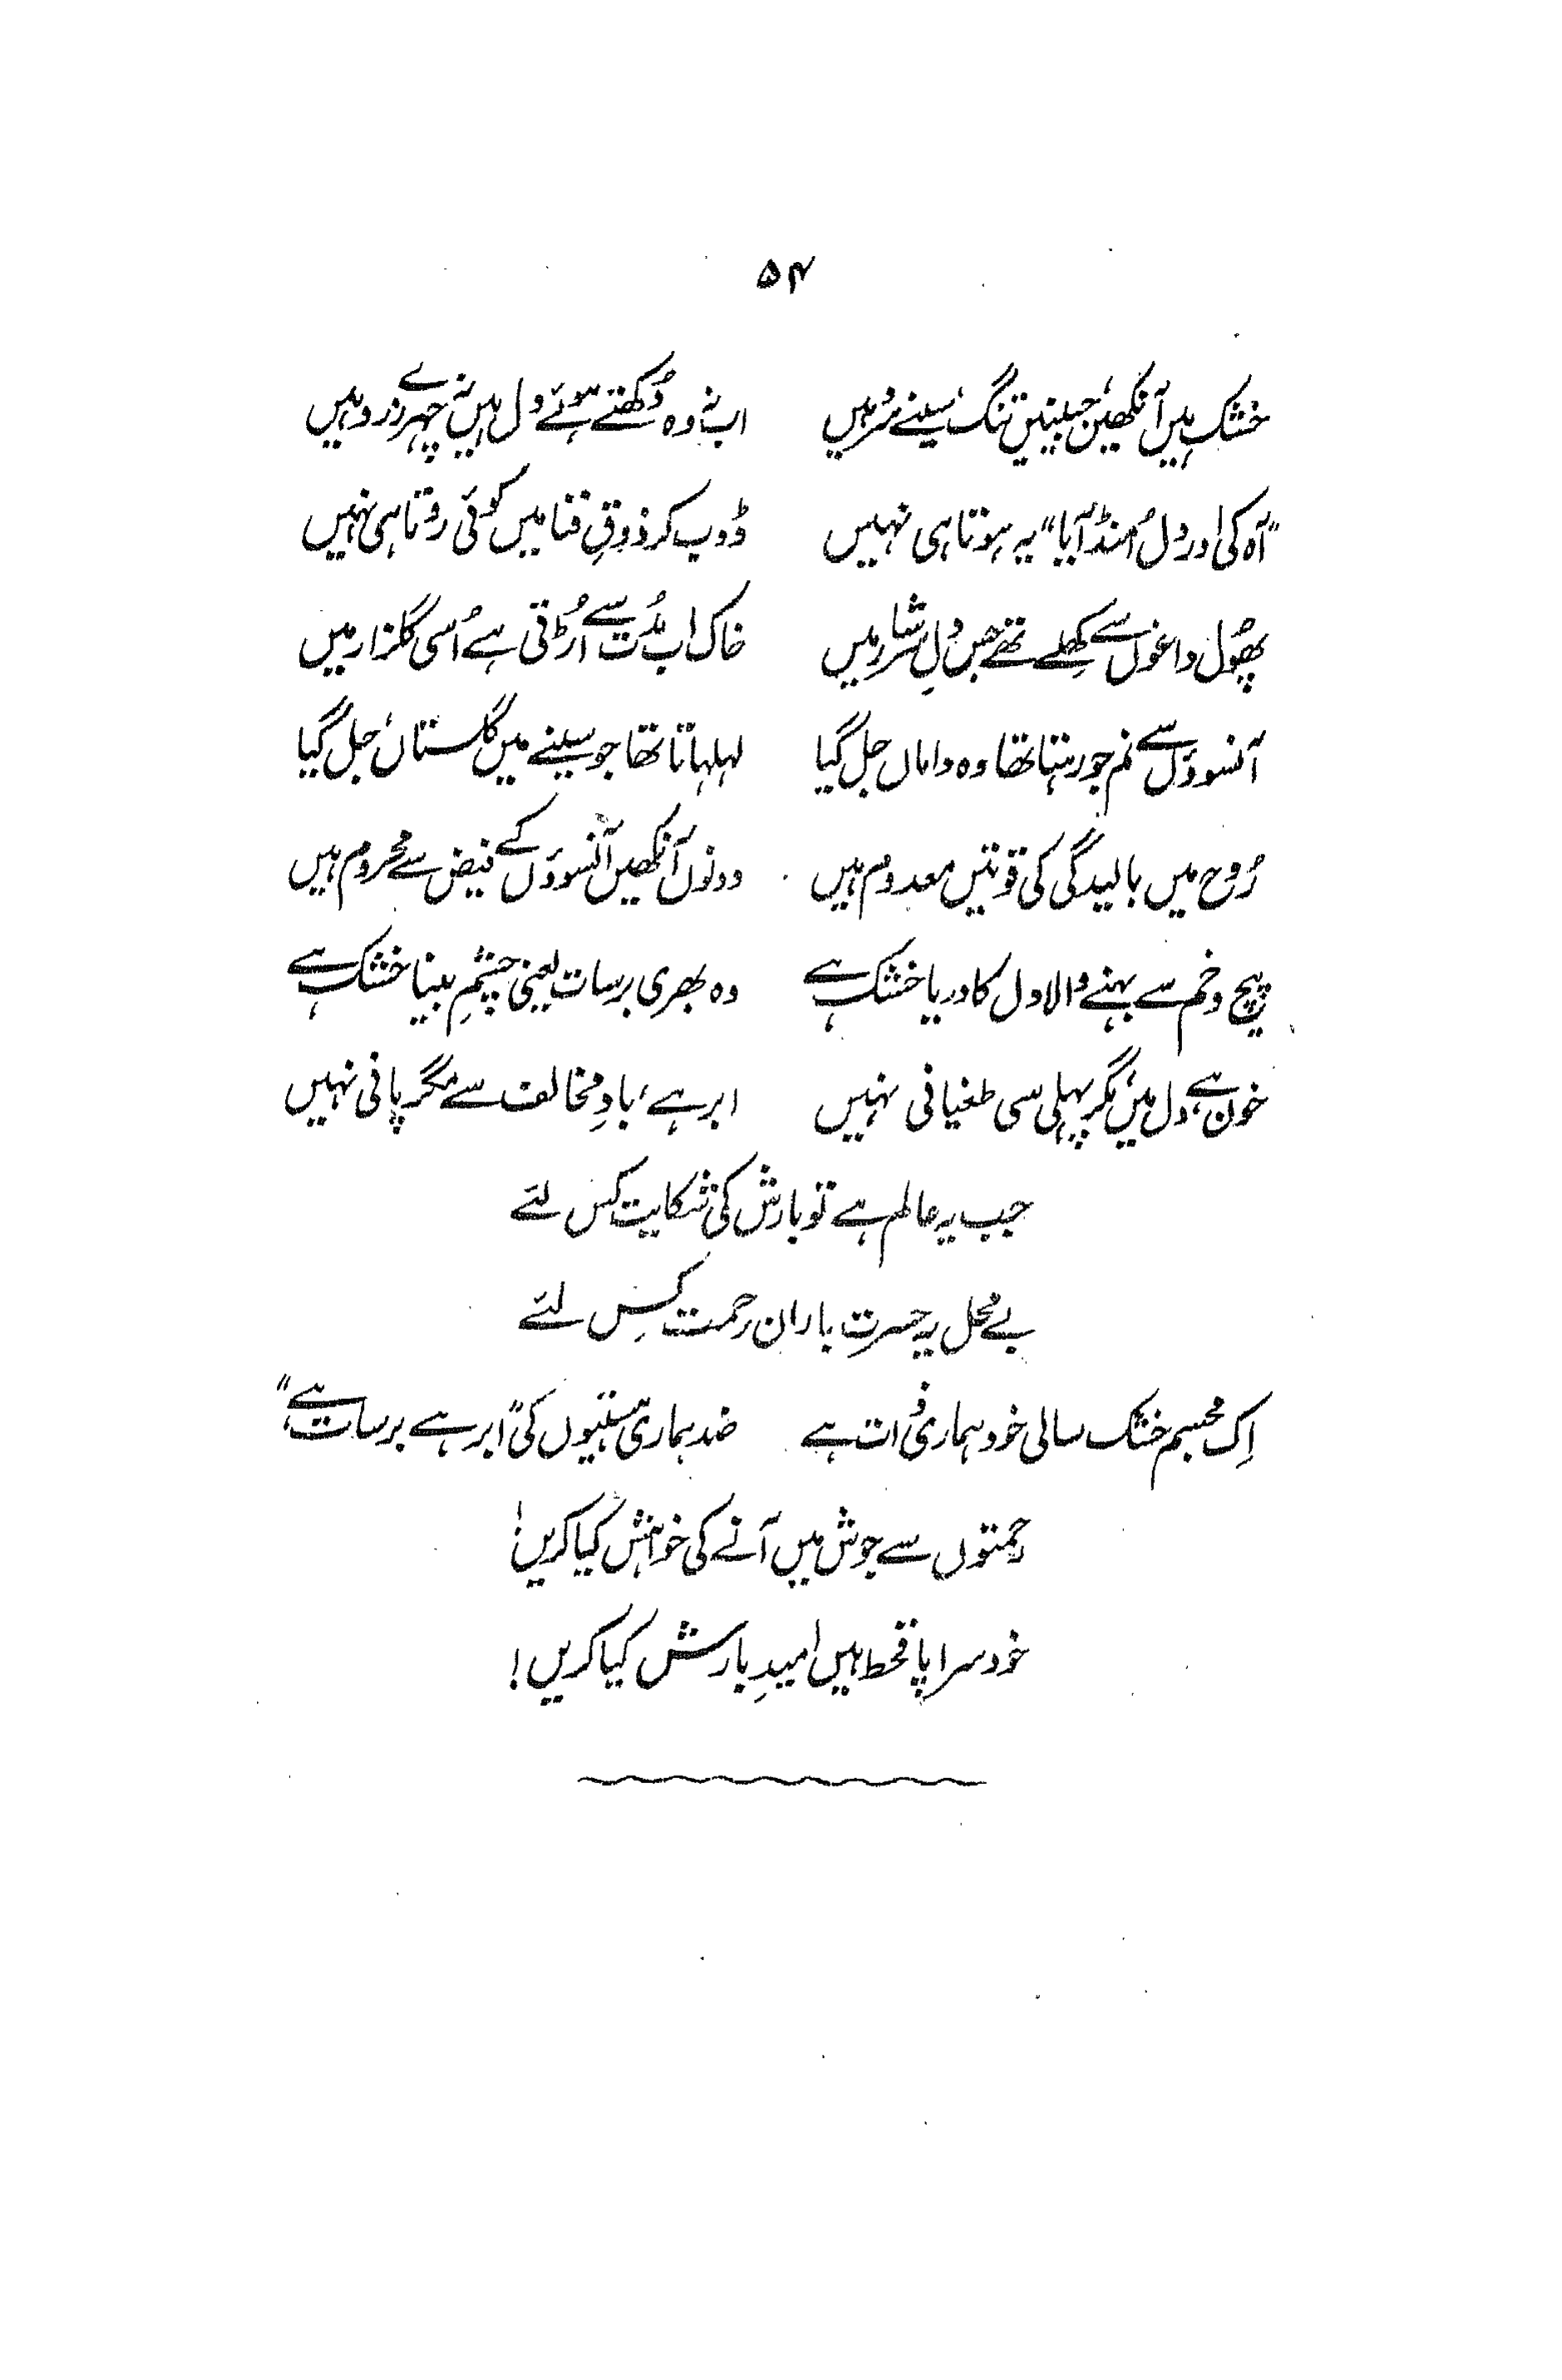 ۵۴
خشک ہیں آنکھیں، جبینیں تنگ، سینے سرد ہیں اب نہ وہ دُکھتے ہوئے دل ہیں نہ چہرے زرد ہیں
"آہ کی اور دل اُمنڈ آیا" یہ ہوتا ہی نہیں ڈوب کر ذوقِ فنا میں کوئی روتا ہی نہیں
پھُول داغوں سے کھِلے تھے جس دلِ سرشار میں خاک اب مُدت سے اُڑتی ہے اُسی گلزار میں
آنسوؤں سے نم جو رہتا تھا وہ داماں جل گیا لہلہاتا تھا جو سینے میں گلستاں، جل گیا
رُوح میں بالیدگی کی قوتیں معدوم ہیں دونوں آنکھیں آنسوؤں کے فیض سے محروم ہیں
پیچ و خم سے بہنے والا دل کا دریا خشک ہے وہ بھری برسات یعنی چشمِ بینا خشک ہے
خون ہے دل میں، مگر پہلی سی طغیانی نہیں ابر ہے، بادِ مخالف سے مگر پانی نہیں
جب یہ عالم ہے تو بارش کی شکایت کس لئے
بے محل یہ حسرتِ باران رحمت کِس لئے
اِک مجسم خشک سالی خود ہماری ذات ہے ضد ہماری ہستیوں کی "ابر ہے برسات ہے"
رحمتوں سے جوش میں آنے کی خواہش کیا کریں!
خود سراپا قحط ہیں امیدِ بارش کیا کریں!